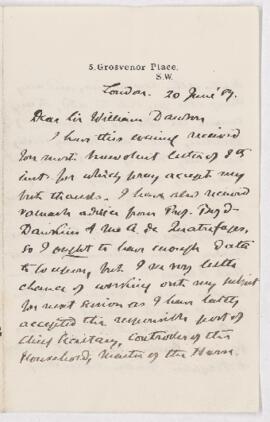 5, Grosvenor Place,
S.W.
London. 20 June '89.
Dear Sir William Dawson
I have this evening received
your most benevolent letter of 8th
inst. for which pray accept my
best thanks. I have also received
advice from Prof. Boyd-
Dawkins & Mr. A. de Quatrefages,
So I ought to have enough data
to go upon, but I've very little
chance of working out my subject
for next Session as I have lately
accepted the responsible post of
Chief Secretary, Controller of the
Household, Master of the Horse.